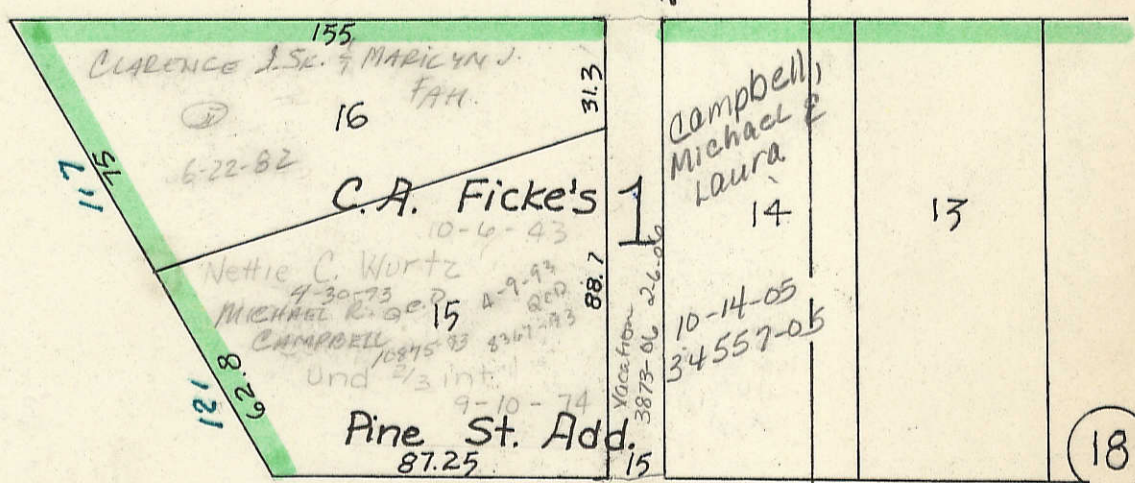 155
CLARENCE
MARILYN J.
FAH.
16
6-22-82
31.3
117
75
C.A. Ficke's
1
10-6-43
Nettie C. Wurtz
4-30-93 QCD
MICHAEL R.
CAMPBELL
15
4-9-93
QCD
10895-93 8367-93
Und 2/3 int.
9-10-74
88.7
121
62.8
Pine St. Add.
87.25
15
Vacation 2-6-06
3873-06
Campbell,
Michael &
Laura
14
10-14-05
34557-05
13
18